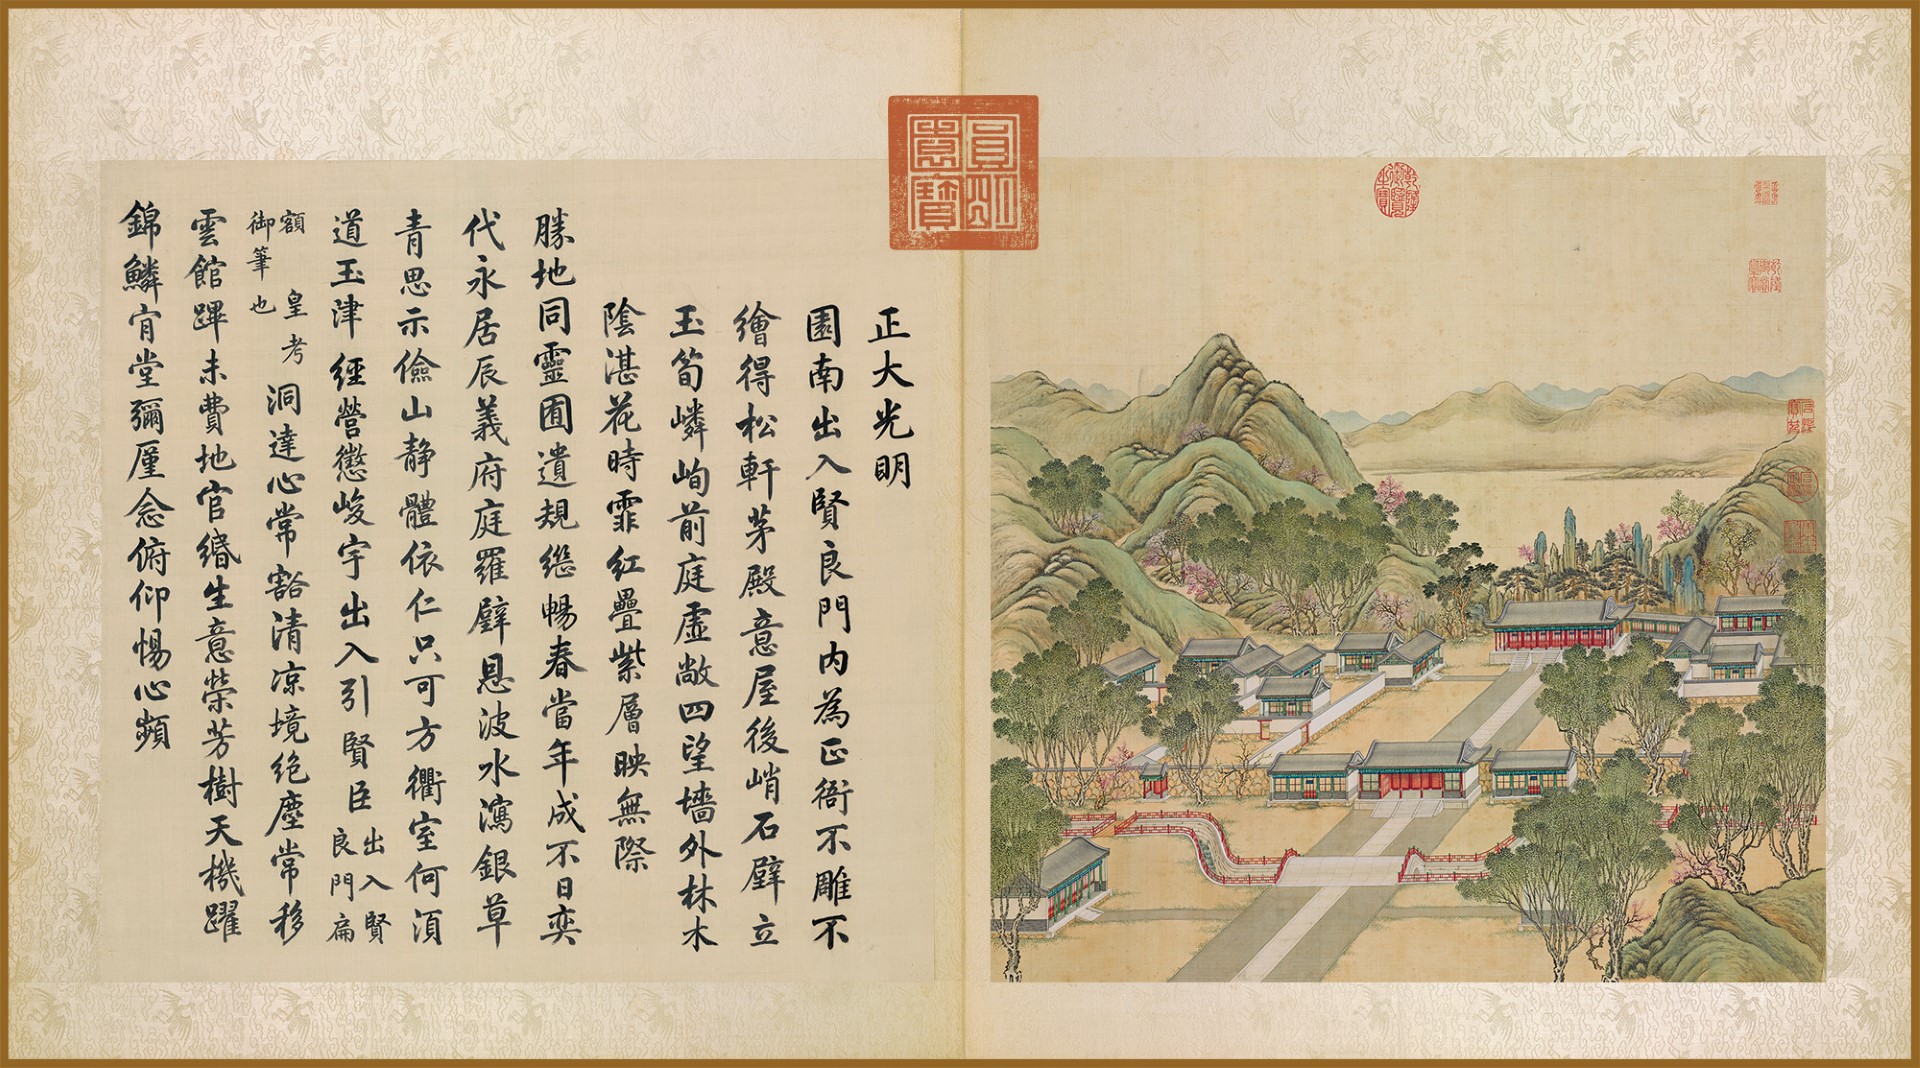 正大光明
園南出入賢良門內為正衙不雕不
繪得松軒茅殿意屋後峭石壁立
玉筍嶙峋前庭虛敞四望墻外林木
陰湛花時霏紅疊紫層映無際
勝地同靈囿遺規継暢春當年成不日奕
代永居辰義府庭羅壁恩波水瀉銀草
青思示儉山静體依仁只可方衢室何須
道玉津經營懲峻宇出入引賢臣出入賢良門扁
額皇考御筆也洞達心常豁清凉境絶塵常移
雲館蹕未費地官緡生意榮芳樹天機躍
錦鱗肎堂彌厪念俯仰惕心頻
乾隆御覽之寶